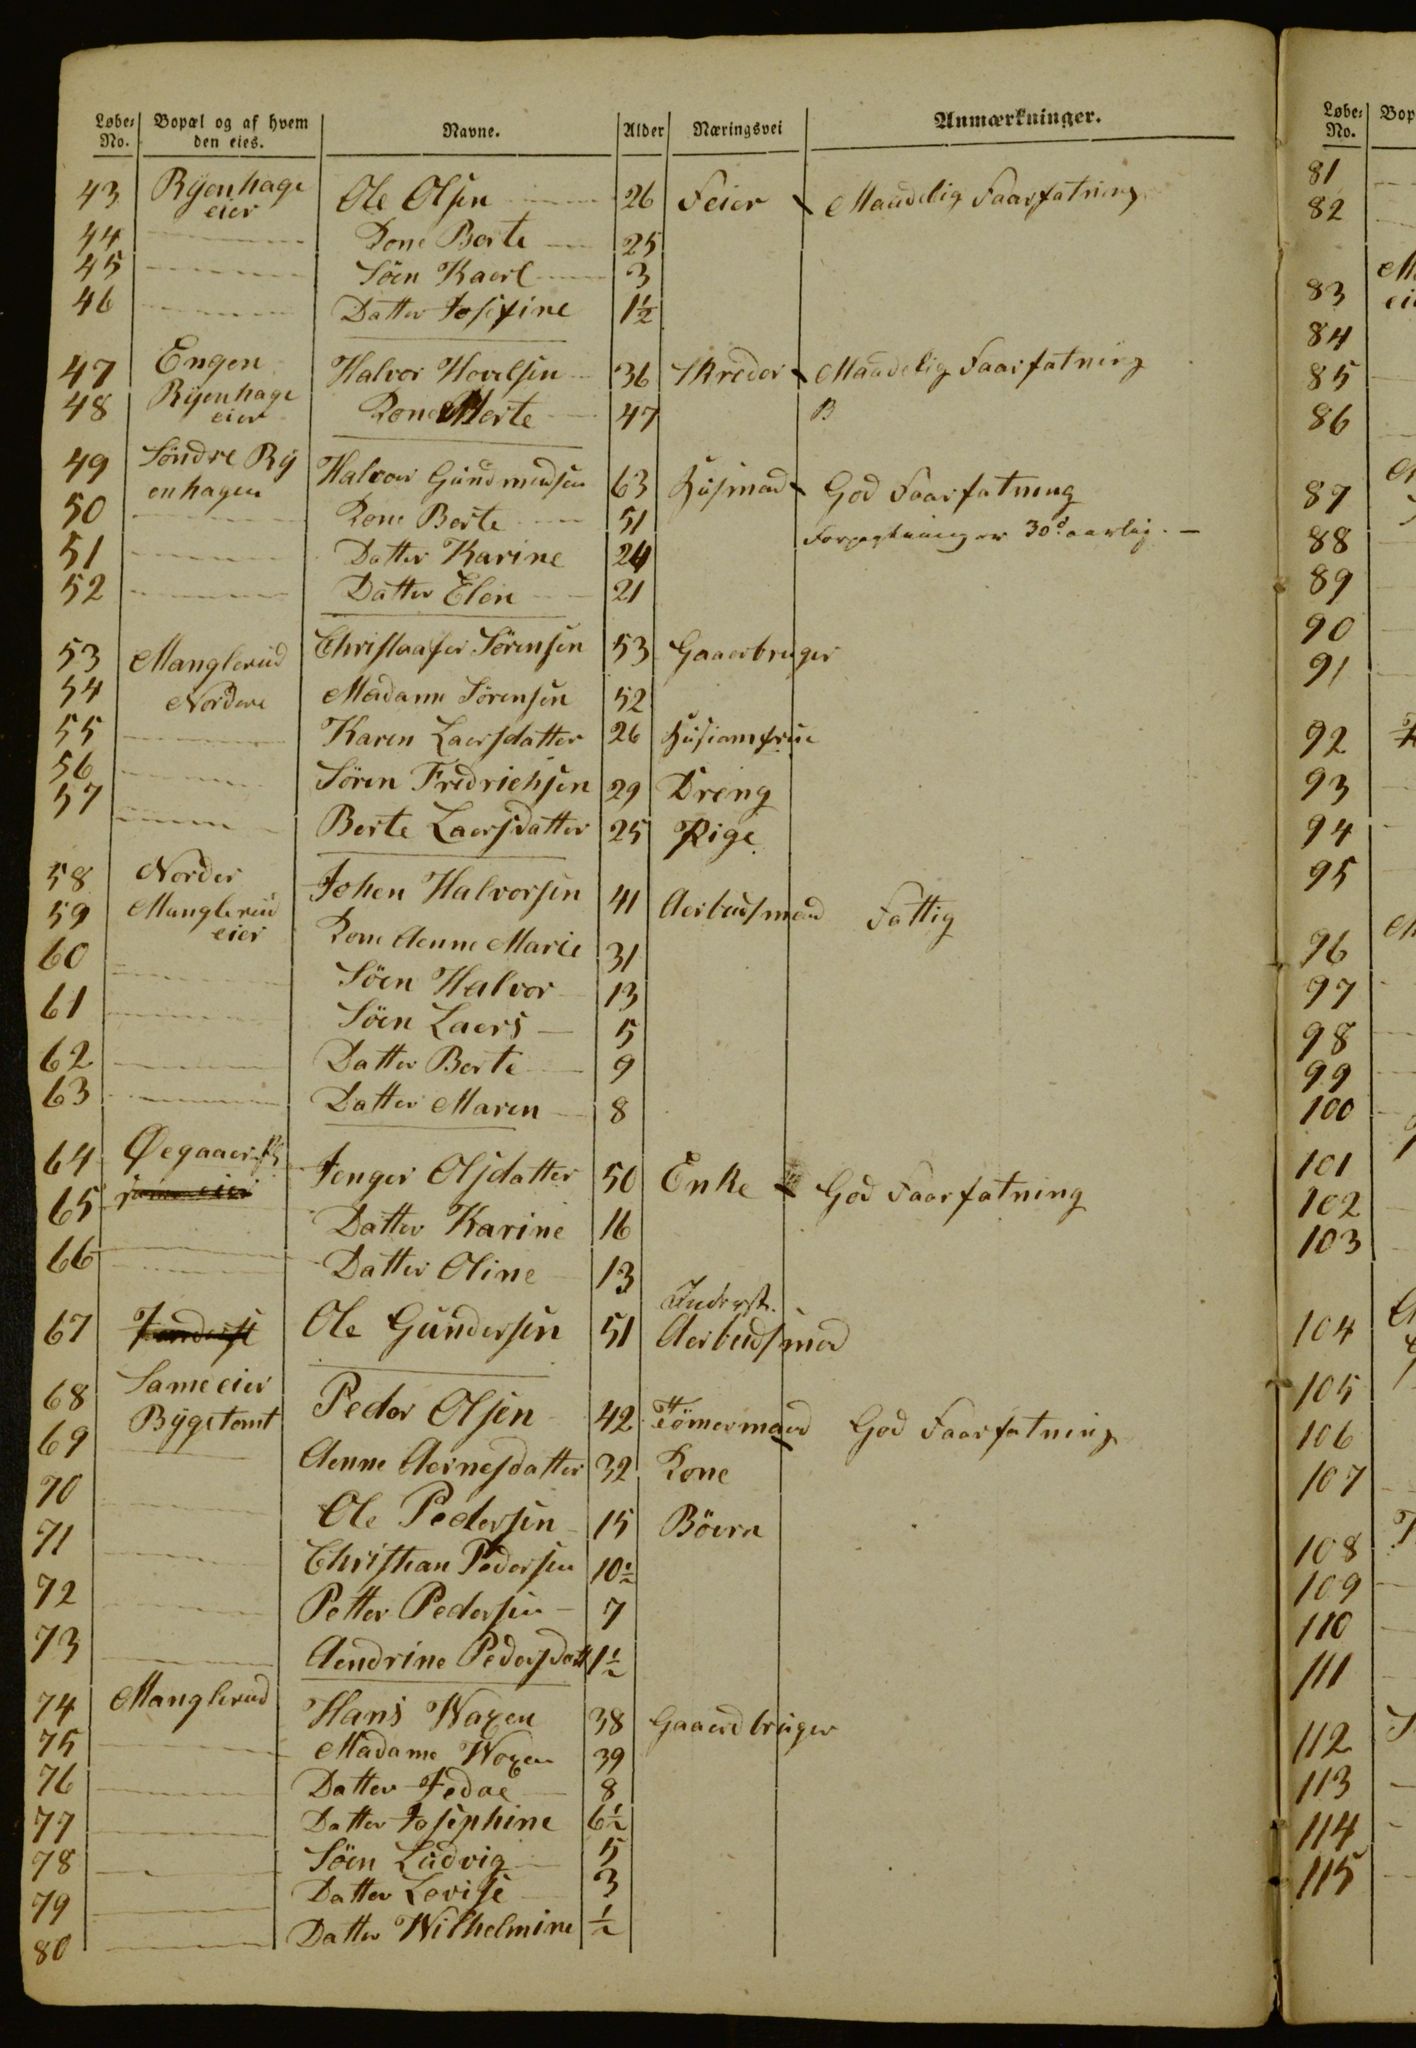 Løbe-No. Bopæl og af hvem den eies. Navne. Alder Næringsvei Anmærkninger.
43 Ryenhage eier Ole Olsen 26 Feier Maadelig Faarfatning
44 Kone Berte 25
45 Söen Kaerl 3
46 Datter Josefine 1½
47 Engen Halvor Hovelsen 36 Skreder Maadelig Faarfatning
48 Ryenhage eier Kone Merte 47 B
49 Söndre Ry Halvor Gundmundsen 63 Husmad God Faarfatning
50 enhagen Kone Berte 51 Forpagtning er 30d aarlig. —
51 Datter Karine 24
52 Datter Elen 21
53 Manglerud Christaafer Sörensen 53 Gaaerbruger
54 Nordere Madamm Sörensen 52
55 Karen Laersdatter 26 Husiomfrue
56 Sören Fredrichsen 29 Dreng
57 Berte Laersdatter 25 Pige
58 Norder Johen Halvorsen 41 Aerbudsmand Fattig
59 Manglerud eier Kone Aenne Marie 31
60 Söen Halvor 13
61 Söen Laers 5
62 Datter Berte 9
63 Datter Maren 8
64 Øegaaer Jenger Olsdatter 50 Enke God Faarfatning
65 Datter Karine 16
66 Datter Oline 13
67 Ole Gundersen 51 Inderst. Aerbudsmad
68 Same eier Peder Olsen 42 Tömermand God Faarfatning
69 Bygetomt Aenne Aernesdatter 32 Kone
70 Ole Pedersen 15 Böern
71 Christian Pedersen 10½
72 Petter Pedersen 7
73 Aendrine Pedersdatt 1½
74 Manglerud Hans Waxen 38 Gaaerdbruger
75 Madame Woxen 39
76 Datter Jedae 8
77 Datter Josephine 6½
78 Söen Ludvig 5
79 Datter Lovise 3
80 Datter Wilhelmine ½
Løbe-No. Bop
81
82
83
84
85
86
87
88
89
90
91
92
93
94
95
96
97
98
99
100
101
102
103
104
105
106
107
108
109
110
111
112
113
114
115